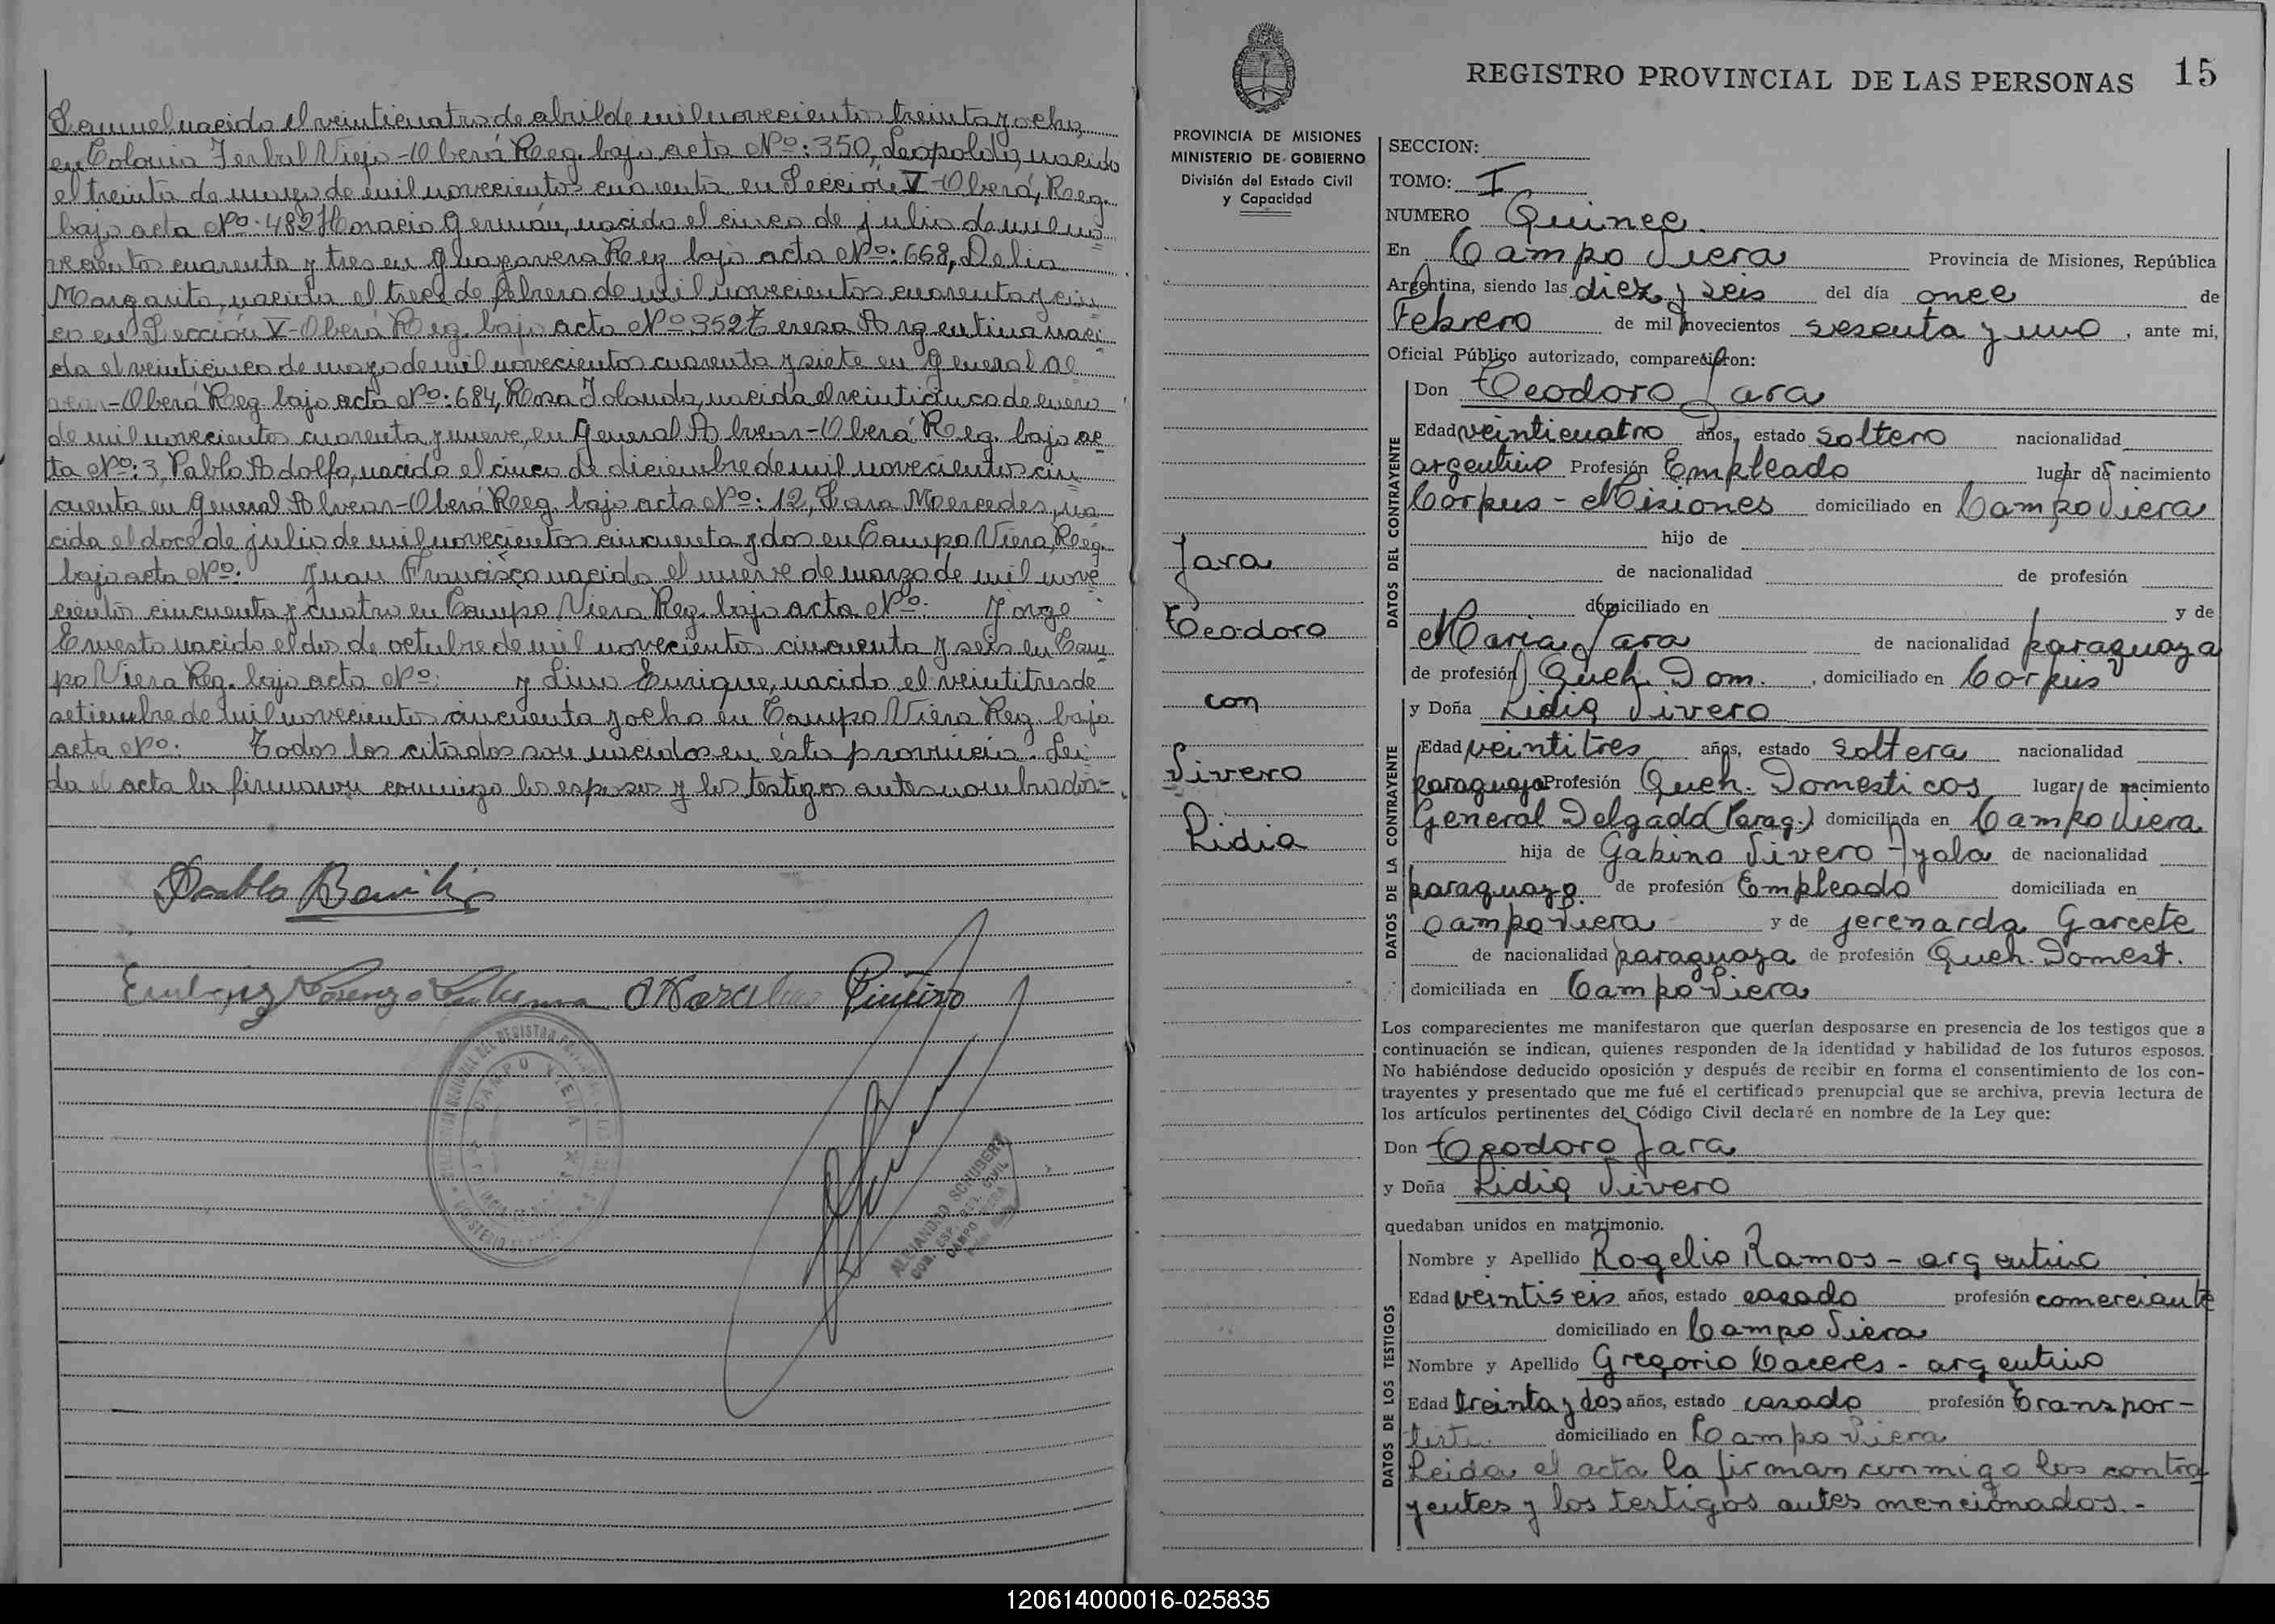 Samuel nacido el veinticuatro de abril de mil novecientos treinta y ocho,
en Colonia Yerbal Viejo-Oberá Reg. bajo acta Nº: 350, Leopoldo, nacido
el treinta de mayo de mil novecientos cuarenta en Sección V-Oberá, Reg.
bajo acta Nº: 482 Horacio Germán, nacido el cinco de julio de mil no
vecientos cuarenta y tres en Guayavera Reg. bajo acta Nº: 668, Delia
Margarita, nacida el trece de febrero de mil novecientos cuarenta y cin
co en Sección V-Oberá Reg. bajo acta Nº 352 Teresa Argentina naci
da el veinticinco de mayo de mil novecientos cuarenta y siete en General Al
vear-Oberá Reg. bajo acta Nº: 684, Rosa Yolanda, nacida el veinticinco de enero
de mil novecientos cuarenta y nueve, en General Alvear-Oberá Reg. bajo ac
ta Nº: 3, Pablo Adolfo, nacido el cinco de diciembre de mil novecientos cin
cuenta en General Alvear-Oberá Reg. bajo acta Nº: 12, Sara Mercedes, na
cida el doce de julio de mil novecientos cincuenta y dos en Campo Viera, Reg.
bajo acta Nº: Juan Francisco nacido el nueve de marzo de mil nove
cientos cincuenta y cuatro en Campo Viera Reg. bajo acta Nº: Jorge
Ernesto nacido el dos de octubre de mil novecientos cincuenta y seis en Cam
po Viera Reg. bajo acta Nº: y Lino Enrique, nacido el veintitres de
setiembre de mil novecientos cincuenta y ocho en Campo Viera Reg. bajo
acta Nº: Todos los citados son nacidos en ésta provincia. Lei
da el acta la firmaron conmigo los esposos y los testigos antes nombrados-
Pablo
CAMPO VIERA
ALEJANDRO SCHUBERT
CAMPO VIERA
REGISTRO PROVINCIAL DE LAS PERSONAS 15
PROVINCIA DE MISIONES
MINISTERIO DE GOBIERNO
División del Estado Civil
y Capacidad
Jara
Teodoro
con
Vivero
Lidia
SECCION:
TOMO: I
NUMERO Quince.
En Campo Viera Provincia de Misiones, República
Argentina, siendo las diez y seis del día once de
Febrero de mil novecientos sesenta y uno, ante mi,
Oficial Público autorizado, comparecieron:
DATOS DEL CONTRAYENTE
Don Teodoro Jara
Edad veinticuatro años, estado soltero nacionalidad
argentino Profesión Empleado lugar de nacimiento
Corpus - Misiones domiciliado en Campo Viera
hijo de
de nacionalidad de profesión
domiciliado en y de
Maria Jara de nacionalidad paraguaya
de profesión Queh. Dom., domiciliado en Corpus
y Doña Lidia Vivero
DATOS DE LA CONTRAYENTE
Edad veintitres años, estado soltera nacionalidad
paraguaya Profesión Queh. Domesticos lugar de nacimiento
General Delgado (Parag.) domiciliada en Campo Viera
hija de Gabino Vivero Ayala de nacionalidad
paraguayo de profesión Empleado domiciliada en
Campo Viera y de Jerenarda Garcete
de nacionalidad paraguaya de profesión Queh. Domest.
domiciliada en Campo Viera
Los comparecientes me manifestaron que querían desposarse en presencia de los testigos que a
continuación se indican, quienes responden de la identidad y habilidad de los futuros esposos.
No habiéndose deducido oposición y después de recibir en forma el consentimiento de los con-
trayentes y presentado que me fué el certificado prenupcial que se archiva, previa lectura de
los artículos pertinentes del Código Civil declaré en nombre de la Ley que:
Don Teodoro Jara
y Doña Lidia Vivero
quedaban unidos en matrimonio.
DATOS DE LOS TESTIGOS
Nombre y Apellido Rogelio Ramos - argentino
Edad veintiseis años, estado casado profesión comerciante
domiciliado en Campo Viera
Nombre y Apellido Gregorio Caceres - argentino
Edad treinta y dos años, estado casado profesión Transpor-
tista domiciliado en Campo Viera
Leida el acta la firman conmigo los contra
yentes y los testigos antes mencionados.-
120614000016-025835